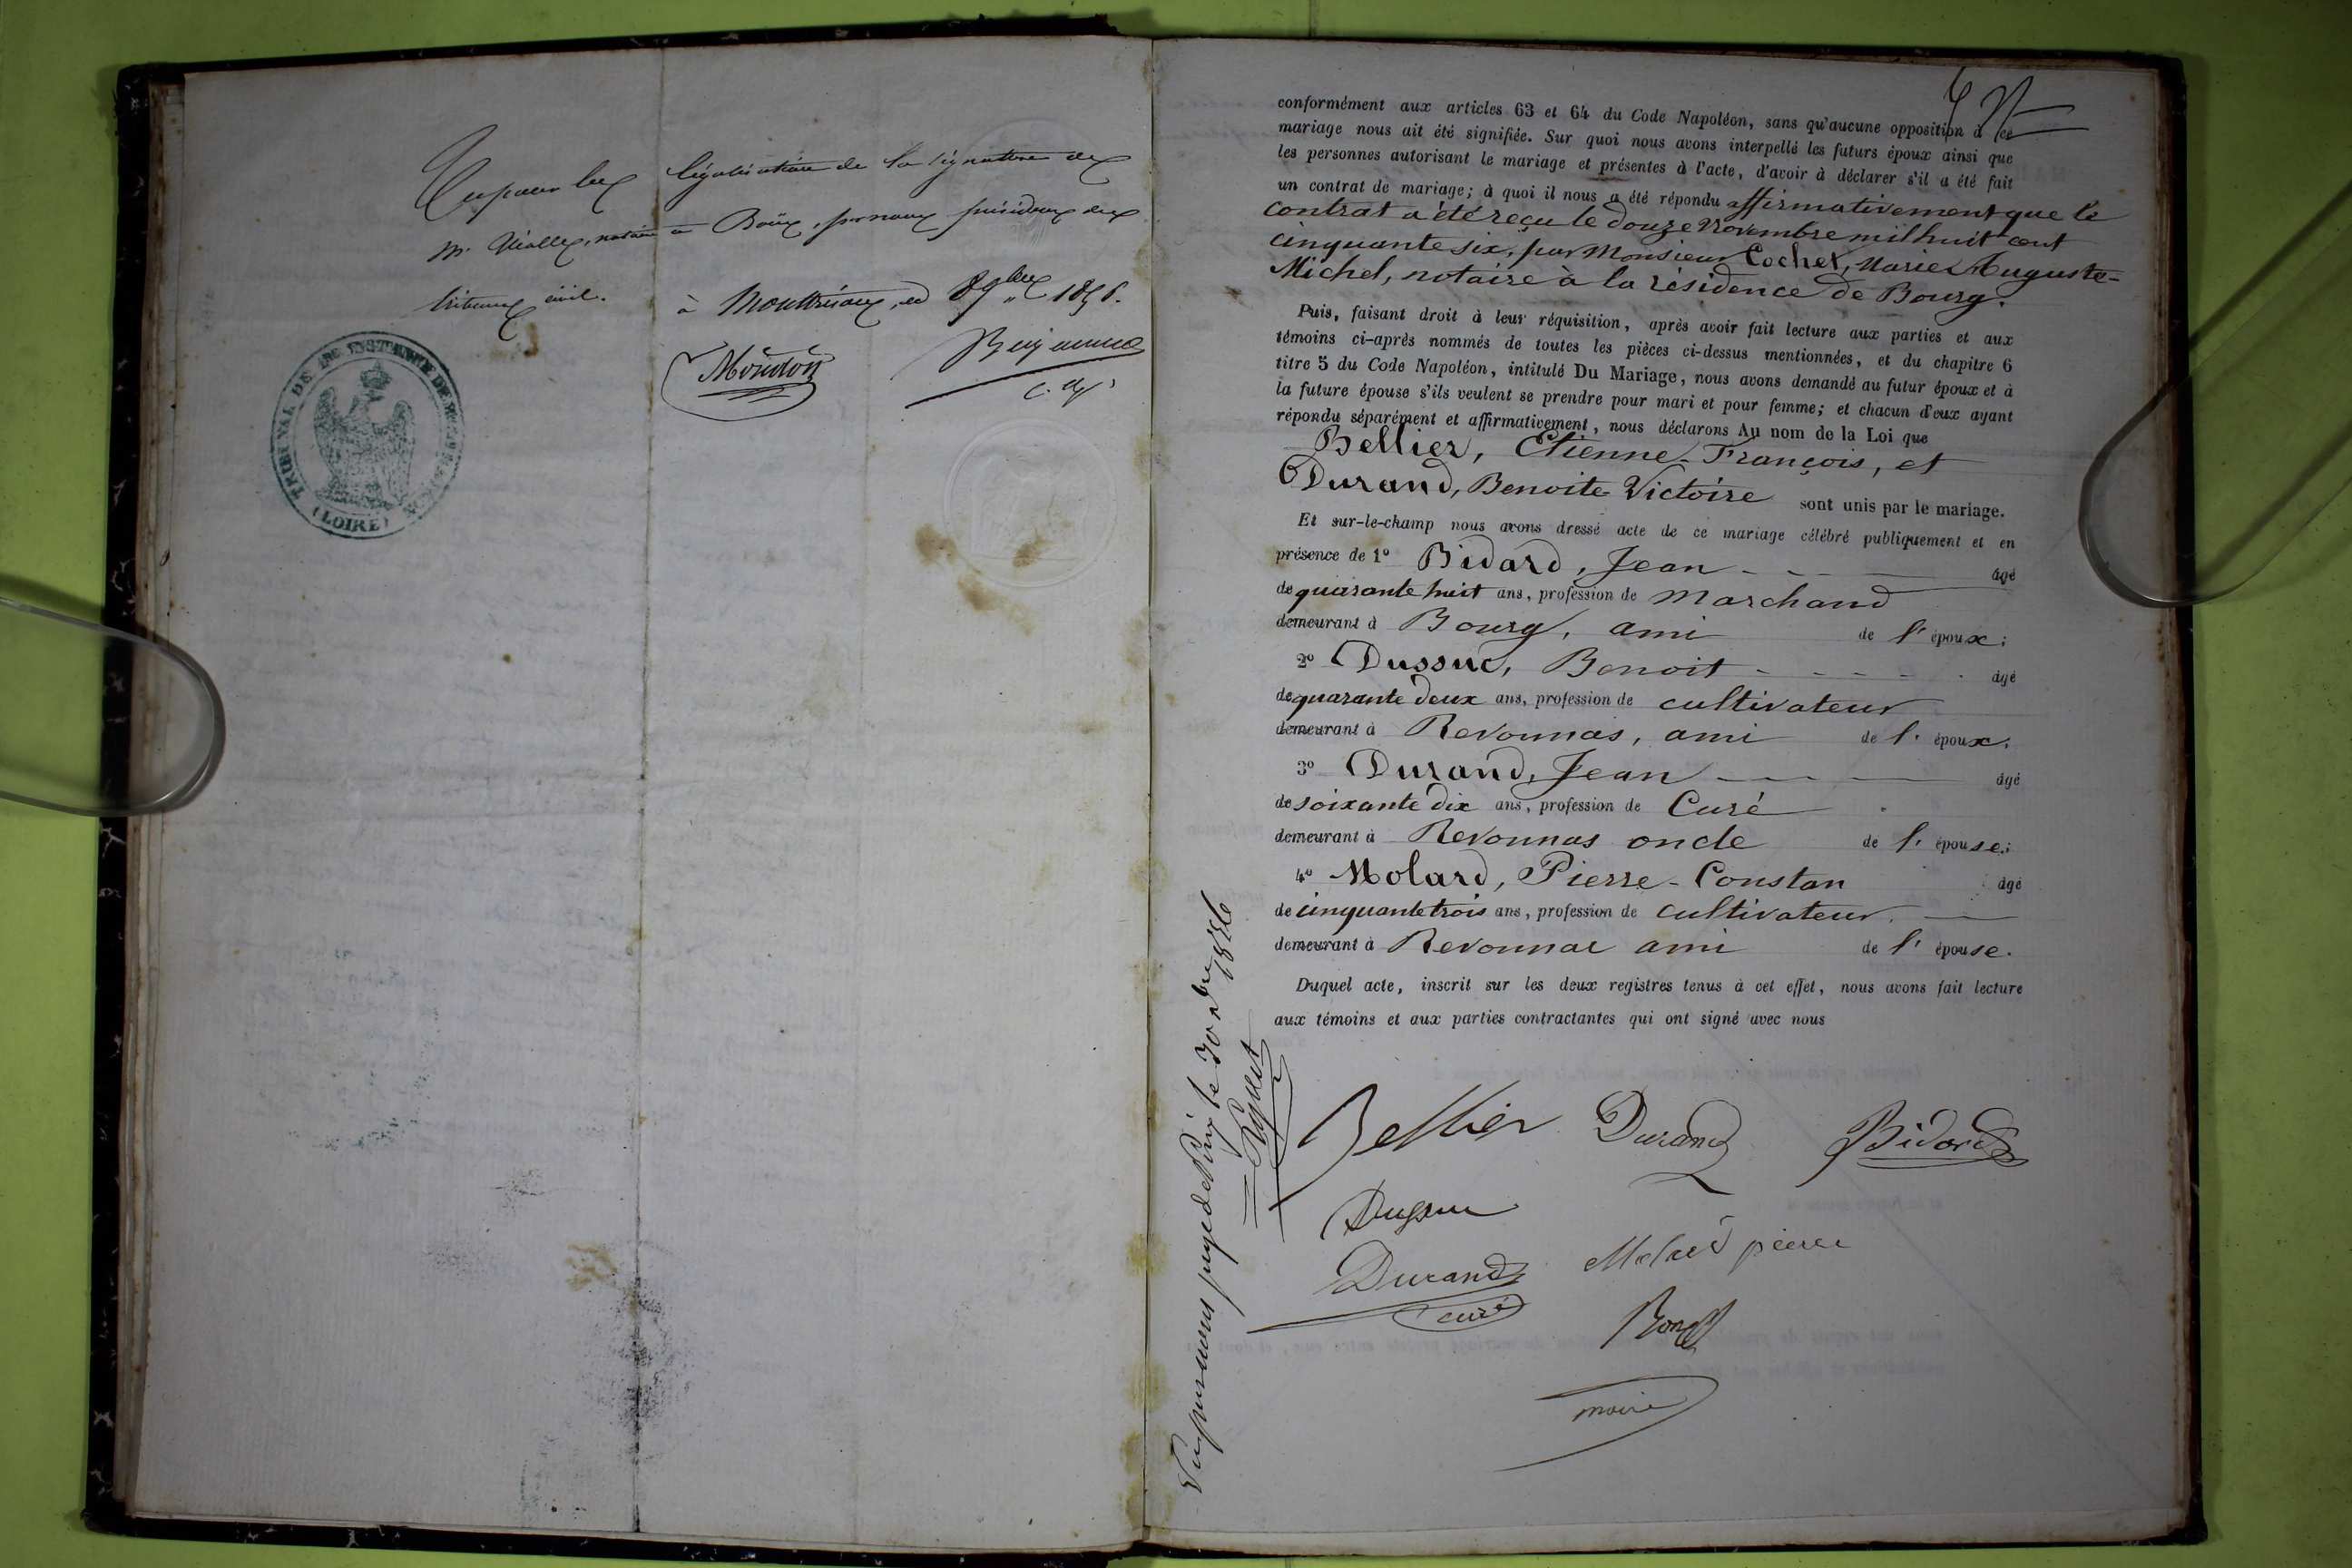 légalisation de la signature de
Mr. notaire à Boën, par nous président du
tribunal civil.
à Montbrison, le 8 9bre 1856.
TRIBUNAL DE 1re INSTANCE DE
(LOIRE)
conformément aux articles 63 et 64 du Code Napoléon, sans qu'aucune opposition à ce
mariage nous ait été signifiée. Sur quoi nous avons interpellé les futurs époux ainsi que
les personnes autorisant le mariage et présentes à l'acte, d'avoir à déclarer s'il a été fait
un contrat de mariage; à quoi il nous a été répondu affirmativement que le
contrat a été reçu le douze Novembre mil huit cent
cinquante six, par Monsieur Cochet, Marie Auguste-
Michel, notaire à la résidence de Bourg.
Puis, faisant droit à leur réquisition, après avoir fait lecture aux parties et aux
témoins ci-après nommés de toutes les pièces ci-dessus mentionnées, et du chapitre 6
titre 5 du Code Napoléon, intitulé Du Mariage, nous avons demandé au futur époux et à
la future épouse s'ils veulent se prendre pour mari et pour femme; et chacun d'eux ayant
répondu séparément et affirmativement, nous déclarons Au nom de la Loi que
Bellier, Etienne-François, et
Durand, Benoite Victoire sont unis par le mariage.
Et sur-le-champ nous avons dressé acte de ce mariage célébré publiquement et en
présence de 1º Bidard, Jean âgé
de quarante huit ans, profession de Marchand
demeurant à Bourg, ami de l'époux;
2º Dussuc, Benoit âgé
de quarante deux ans, profession de cultivateur
demeurant à Revonnas, ami de l'époux;
3º Durand, Jean âgé
de soixante dix ans, profession de Curé
demeurant à Revonnas oncle de l'épouse;
4º Molard, Pierre-Constan âgé
de cinquante trois ans, profession de cultivateur.
demeurant à Revonnas ami de l'épouse.
Duquel acte, inscrit sur les deux registres tenus à cet effet, nous avons fait lecture
aux témoins et aux parties contractantes qui ont signé avec nous
Bellier Durand Bidard
Dussuc
Durand Molard pierre
curé
maire
Vu par nous juge de Paix le 30 Xbre
1856